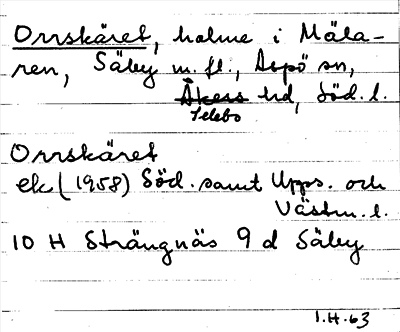 Orrskäret, holme i Mäla-
ren, Säby m.fl., Aspö sn,
Åkers hd, Söd.l.
Selebo
Orrskäret
ek (1958) Söd. samt Upps. och
Västm.l.
10 H Strängnäs 9 d Säby
1.H.63